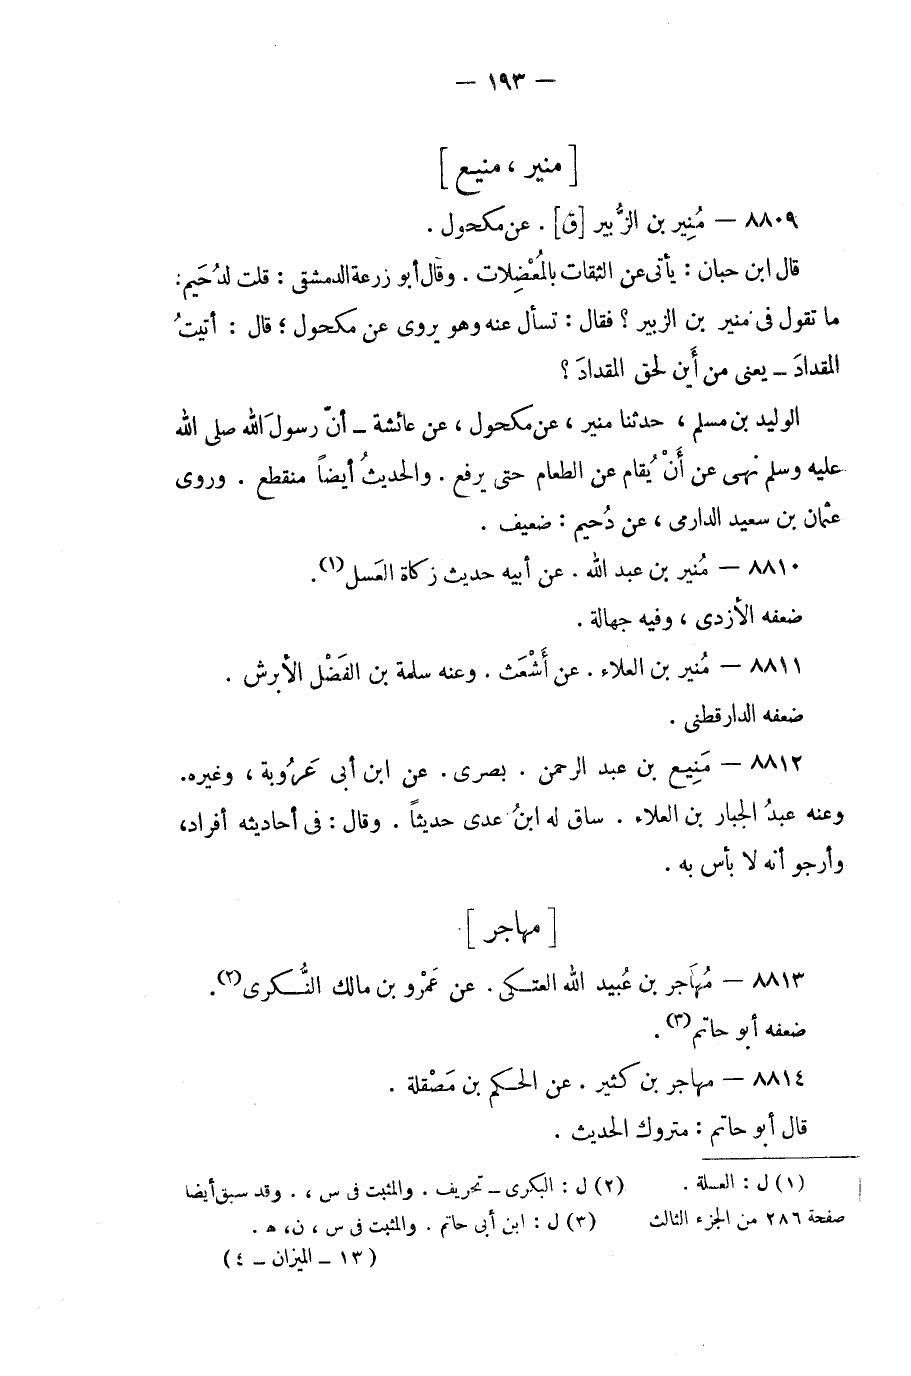 — ١٩٣ —
[ منير ، منيع ]
٨٨٠٩ — مُنِير بن الزُّبير [ق] . عن مكحول .
قال ابن حبان : يأتى عن الثقات بالمُعْضِلات . وقال أبو زرعة الدمشقى : قلت لدُحَيم :
ما تقول فى منير بن الزبير ؟ فقال : تسأل عنه وهو يروى عن مكحول ؛ قال : أتيتُ
المقدادَ ــ يعنى من أَين لحق المقدادَ ؟
الوليد بن مسلم ، حدثنا منير ، عن مكحول ، عن عائشة ــ أنّ رسولَ الله صلى الله
عليه وسلم نهى عن أَنْ يُقام عن الطعام حتى يرفع . والحديثُ أيضاً منقطع . وروى
عثمان بن سعيد الدارمى ، عن دُحيم : ضعيف .
٨٨١٠ — مُنير بن عبد الله . عن أبيه حديث زكاة العَسل(١).
ضعفه الأزدى ، وفيه جهالة .
٨٨١١ — مُنير بن العلاء . عن أَشْعَث . وعنه سلمة بن الفَضْل الأبرش .
ضعفه الدارقطنى .
٨٨١٢ — مَنِيع بن عبد الرحمن . بصرى . عن ابن أبى عَرُوبة ، وغيره.
وعنه عبدُ الجبار بن العلاء . ساق له ابنُ عدى حديثاً . وقال : فى أحاديثه أفراد،
وأرجو أنه لا بأس به .
[ مهاجر ]
٨٨١٣ — مُهَاجر بن عُبيد الله العتـكى . عن عَمْرو بن مالك النُّـكرى(٢).
ضعفه أبو حاتم(٣) .
٨٨١٤ — مهاجر بن كثير . عن الحـكم بن مَصْقلة .
قال أبو حاتم : متروك الحديث .
(١) ل : العسلة . (٢) ل : البكرى ــ تحريف . والمثبت فى س ، . وقد سبق أيضا
صفحة ٢٨٦ من الجزء الثالث (٣) ل : ابن أبى حاتم . والمثبت فى س ، ن، هـ .
( ١٣ ــ الميزان ــ ٤ )